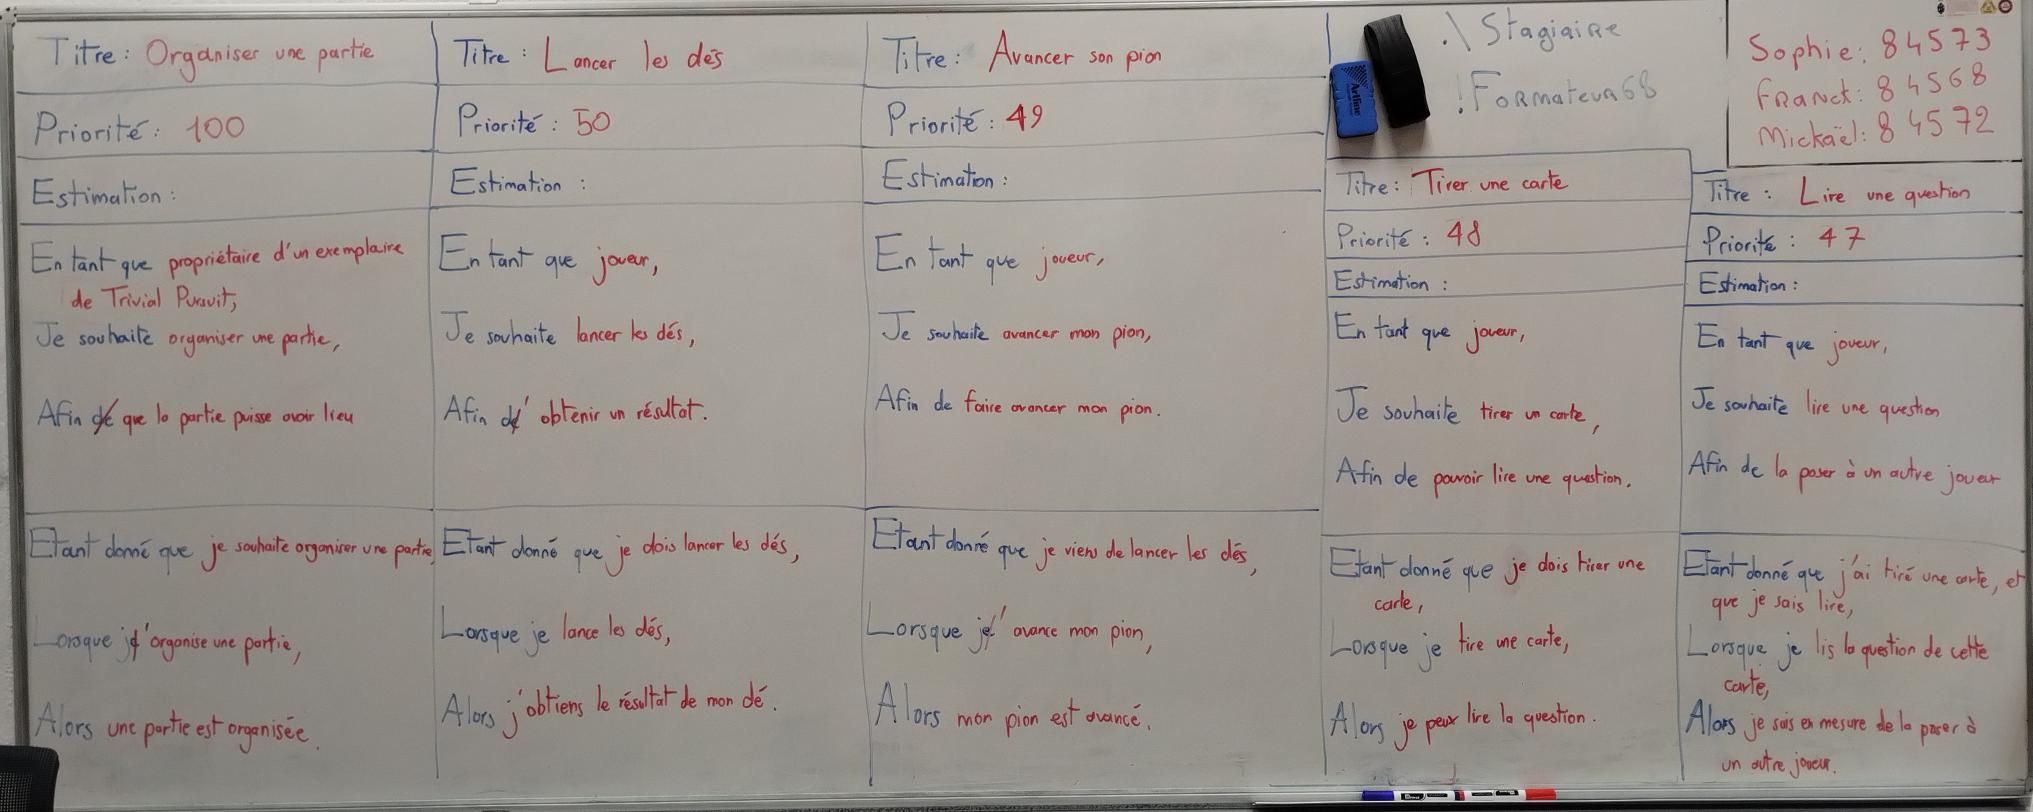 Titre: Organiser une partie
Priorité: 100
Estimation:
En tant que propriétaire d'un exemplaire
de Trivial Pursuit,
Je souhaite organiser une partie,
Afin de que la partie puisse avoir lieu
Etant donné que je souhaite organiser une partie,
Lorsque j'organise une partie,
Alors une partie est organisée.
Titre: Lancer les dés
Priorité: 50
Estimation :
En tant que joueur,
Je souhaite lancer les dés,
Afin d'obtenir un résultat.
Etant donné que je dois lancer les dés,
Lorsque je lance les dés,
Alors j'obtiens le résultat de mon dé.
Titre: Avancer son pion
Priorité: 49
Estimation:
En tant que joueur,
Je souhaite avancer mon pion,
Afin de faire avancer mon pion.
Etant donné que je viens de lancer les dés,
Lorsque j'avance mon pion,
Alors mon pion est avancé.
.\ Stagiaire
!Formateur68
Artline
Titre: Tirer une carte
Priorité : 48
Estimation :
En tant que joueur,
Je souhaite tirer un carte,
Afin de pouvoir lire une question.
Etant donné que je dois tirer une
carte,
Lorsque je tire une carte,
Alors je peux lire la question.
Sophie: 84573
Franck: 84568
Mickaël: 84572
Titre : Lire une question
Priorité : 47
Estimation :
En tant que joueur,
Je souhaite lire une question
Afin de la poser à un autre joueur
Etant donné que j'ai tiré une carte, et
que je sais lire,
Lorsque je lis la question de cette
carte,
Alors je suis en mesure de la poser à
un autre joueur.